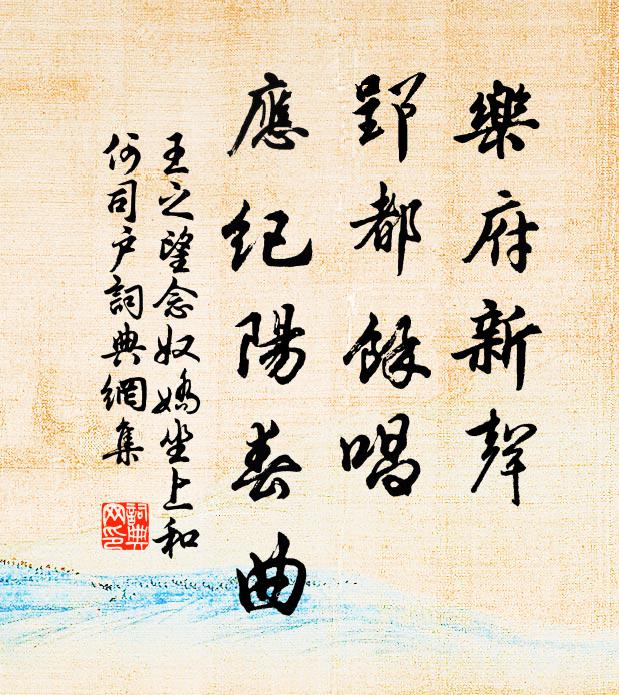 樂府新聲
郢都餘唱
應紀陽春曲
王之望念奴嬌坐上和
何司户詞典網集
詞典
网印